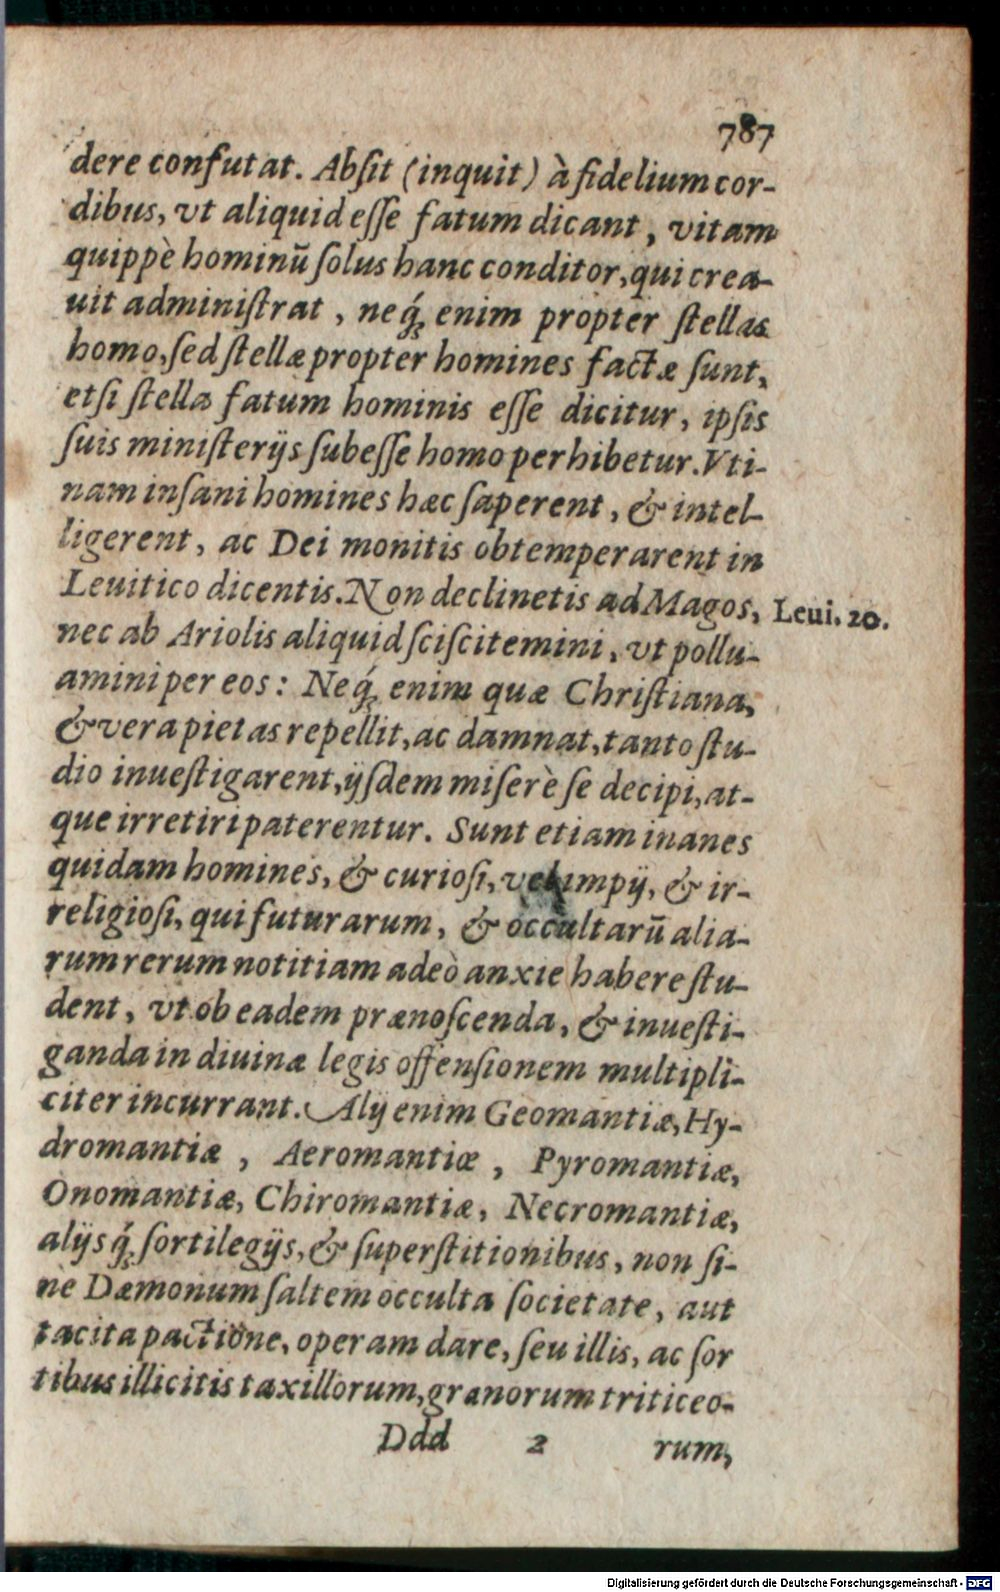 787
dere confutat. Abſit (inquit) à fidelium cor-
dibus, vt aliquid eſſe fatum dicant, vitam
quippè hominū ſolus hanc conditor, qui crea-
uit adminiſtrat, neq́; enim propter ſtellas
homo, ſed ſtellæ propter homines factæ ſunt,
etſi ſtella fatum hominis eſſe dicitur, ipſis
ſuis miniſterijs ſubeſſe homo perhibetur. Vti-
nam inſani homines hæc ſaperent, & intel-
ligerent, ac Dei monitis obtemperarent in
Leuitico dicentis. Non declinetis ad Magos, Leui. 20.
nec ab Ariolis aliquid ſciſcitemini, vt pollu-
amini per eos: Neq́; enim quæ Chriſtiana,
& vera pietas repellit, ac damnat, tanto ſtu-
dio inueſtigarent, ijſdem miſerè ſe decipi, at-
que irretiri paterentur. Sunt etiam inanes
quidam homines, & curioſi, vel impij, & ir-
religioſi, qui futurarum, & occultarū alia-
rum rerum notitiam adeò anxie habere ſtu-
dent, vt ob eadem prænoſcenda, & inueſti-
ganda in diuinæ legis offenſionem multipli-
citer incurrant. Alij enim Geomantiæ, Hy-
dromantiæ, Aeromantiæ, Pyromantiæ,
Onomantiæ, Chiromantiæ, Necromantiæ,
alijsq́; ſortilegijs, & ſuperſtitionibus, non ſi-
ne Dæmonum ſaltem occulta ſocietate, aut
tacita pactione, operam dare, ſeu illis, ac ſor
tibus illicitis taxillorum, granorum triticeo-
Ddd 2 rum,
Digitalisierung gefördert durch die Deutsche Forschungsgemeinschaft - DFG